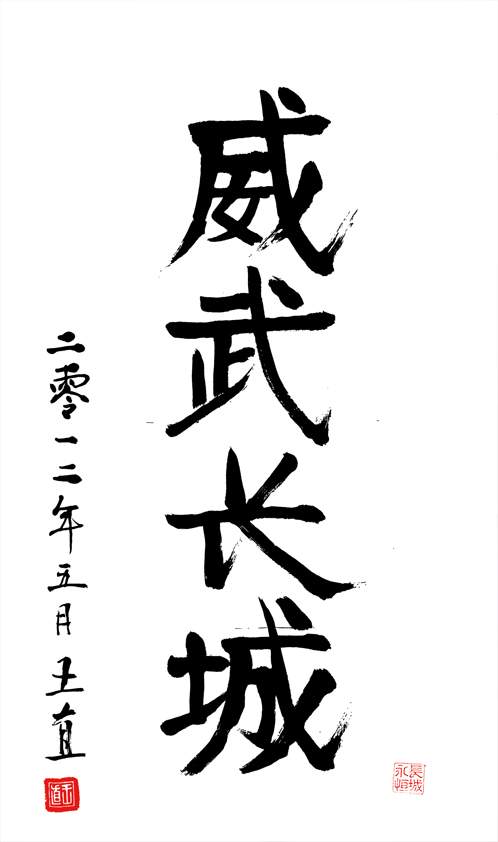 威武长城
二零一二年五月王直
王直
长城永恒